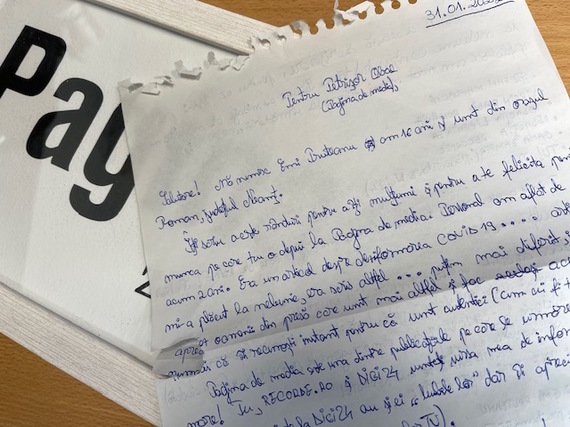 Pag
2
31.01.
Pentru Petrișor Obae
(Pagina de media),
Salutare! Mă numesc Emi Bruteanu am 16 ani și sunt din orașul
Roman, județul Neamț.
Îți scriu aceste rânduri pentru a-ți mulțumi și pentru a te felicita pentru
munca pe care tu o depui la Pagina de media. Personal am aflat de
acum 2 ani. Era un articol despre dezinformarea COVID 19.....
mi-a plăcut la nebunie, era scris altfel ... puțin mai diferit,
apreciez oamenii din presă care sunt mai altfel și fac
numai că îi recunoști instant pentru că sunt autentici (cum ești
Pagina de media este una dintre publicațiile pe care le urmăresc
Tu, RECORDER.RO și DIGI24 sunteți sursa mea de
la DIGI24 au și ei "lubile lor" dar îi
TV).